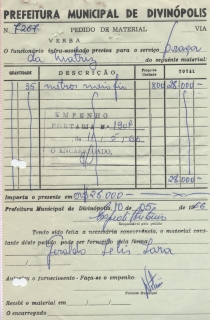 PREFEITURA MUNICIPAL DE DIVINÓPOLIS
N. 7267 PEDIDO DE MATERIAL VIA
VERBA
O funcionário infra-assinado precisa para o serviço praça
da matriz do seguinte material:
QUANTIDADE DESCRIÇÃO Preço da Unidade TOTAL
35 metros meio fio 800 28.000
EMPENHO
PORTARIA N.
de
O ENCARREGADO,
28.000
Importa o presente em Cr$ 28.000
Prefeitura Municipal de Divinópolis, 10 de 05 de 1966
Responsável pelo pedido
Tendo sido feita a necessária concorrência, o material constante
dêste pedido pode ser fornecido pela firma:
Geraldo Felis Lara
Autorizo o fornecimento - Faça-se o empenho.
Prefeito Municipal
Recebi o material em / /
O encarregado